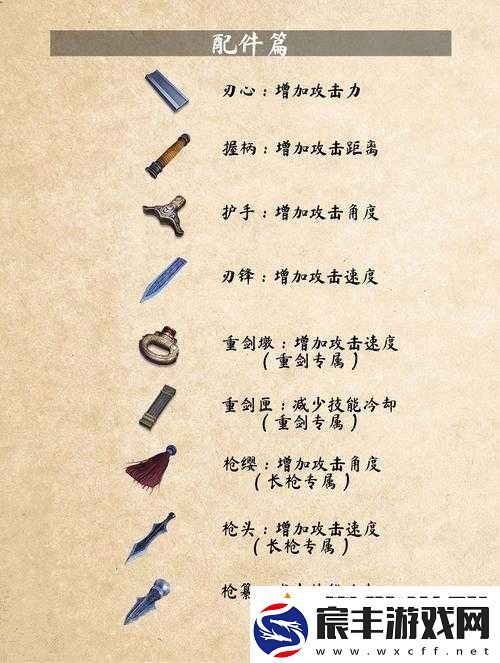 配件篇
刃心：增加攻击力
握柄：增加攻击距离
护手：增加攻击角度
刃锋：增加攻击速度
重剑墩：增加攻击速度
（重剑专属）
重剑匣：减少技能冷却
（重剑专属）
枪缨：增加攻击角度
（长枪专属）
枪头：增加攻击速度
（长枪专属）
枪纂
宸丰游戏网
www.wxcff.net